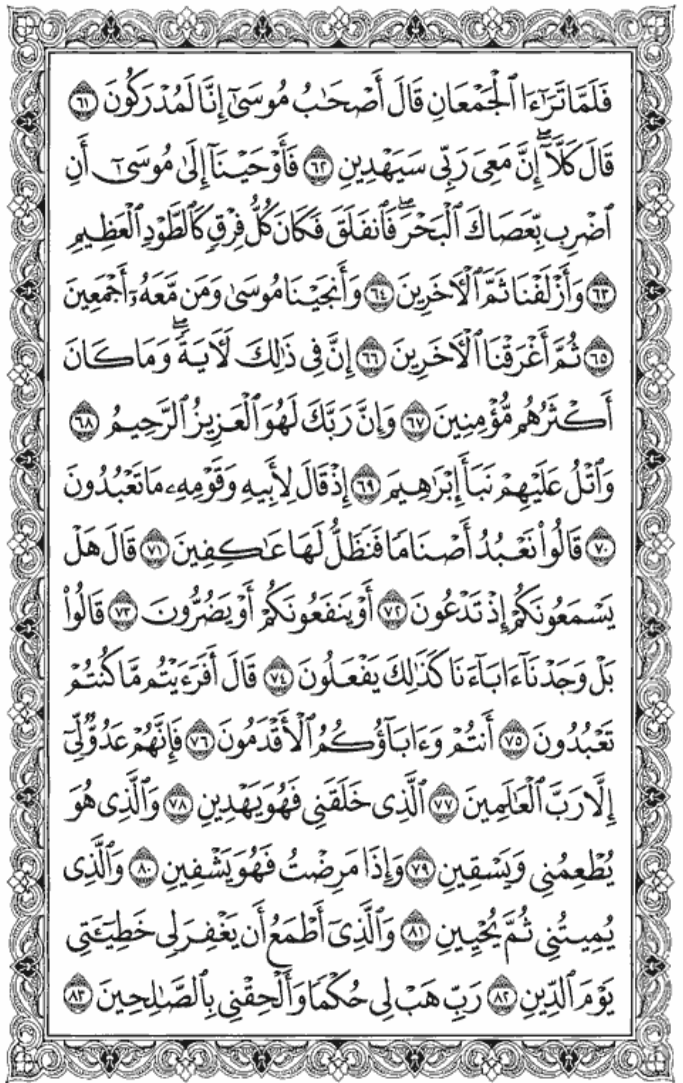 فَلَمَّا تَرَٰٓءَا ٱلۡجَمۡعَانِ قَالَ أَصۡحَٰبُ مُوسَىٰٓ إِنَّا لَمُدۡرَكُونَ ٦١
قَالَ كَلَّآۖ إِنَّ مَعِيَ رَبِّي سَيَهۡدِينِ ٦٢ فَأَوۡحَيۡنَآ إِلَىٰ مُوسَىٰٓ أَنِ
ٱضۡرِب بِّعَصَاكَ ٱلۡبَحۡرَۖ فَٱنفَلَقَ فَكَانَ كُلُّ فِرۡقٖ كَٱلطَّوۡدِ ٱلۡعَظِيمِ
٦٣ وَأَزۡلَفۡنَا ثَمَّ ٱلۡأٓخَرِينَ ٦٤ وَأَنجَيۡنَا مُوسَىٰ وَمَن مَّعَهُۥٓ أَجۡمَعِينَ
٦٥ ثُمَّ أَغۡرَقۡنَا ٱلۡأٓخَرِينَ ٦٦ إِنَّ فِي ذَٰلِكَ لَأٓيَةٗۖ وَمَا كَانَ
أَكۡثَرُهُم مُّؤۡمِنِينَ ٦٧ وَإِنَّ رَبَّكَ لَهُوَ ٱلۡعَزِيزُ ٱلرَّحِيمُ ٦٨
وَٱتۡلُ عَلَيۡهِمۡ نَبَأَ إِبۡرَٰهِيمَ ٦٩ إِذۡ قَالَ لِأَبِيهِ وَقَوۡمِهِۦ مَا تَعۡبُدُونَ
٧٠ قَالُواْ نَعۡبُدُ أَصۡنَامٗا فَنَظَلُّ لَهَا عَٰكِفِينَ ٧١ قَالَ هَلۡ
يَسۡمَعُونَكُمۡ إِذۡ تَدۡعُونَ ٧٢ أَوۡ يَنفَعُونَكُمۡ أَوۡ يَضُرُّونَ ٧٣ قَالُواْ
بَلۡ وَجَدۡنَآ ءَابَآءَنَا كَذَٰلِكَ يَفۡعَلُونَ ٧٤ قَالَ أَفَرَءَيۡتُم مَّا كُنتُمۡ
تَعۡبُدُونَ ٧٥ أَنتُمۡ وَءَابَآؤُكُمُ ٱلۡأَقۡدَمُونَ ٧٦ فَإِنَّهُمۡ عَدُوّٞ لِّيٓ
إِلَّا رَبَّ ٱلۡعَٰلَمِينَ ٧٧ ٱلَّذِي خَلَقَنِي فَهُوَ يَهۡدِينِ ٧٨ وَٱلَّذِي هُوَ
يُطۡعِمُنِي وَيَسۡقِينِ ٧٩ وَإِذَا مَرِضۡتُ فَهُوَ يَشۡفِينِ ٨٠ وَٱلَّذِي
يُمِيتُنِي ثُمَّ يُحۡيِينِ ٨١ وَٱلَّذِيٓ أَطۡمَعُ أَن يَغۡفِرَ لِي خَطِيٓـَٔتِي
يَوۡمَ ٱلدِّينِ ٨٢ رَبِّ هَبۡ لِي حُكۡمٗا وَأَلۡحِقۡنِي بِٱلصَّٰلِحِينَ ٨٣